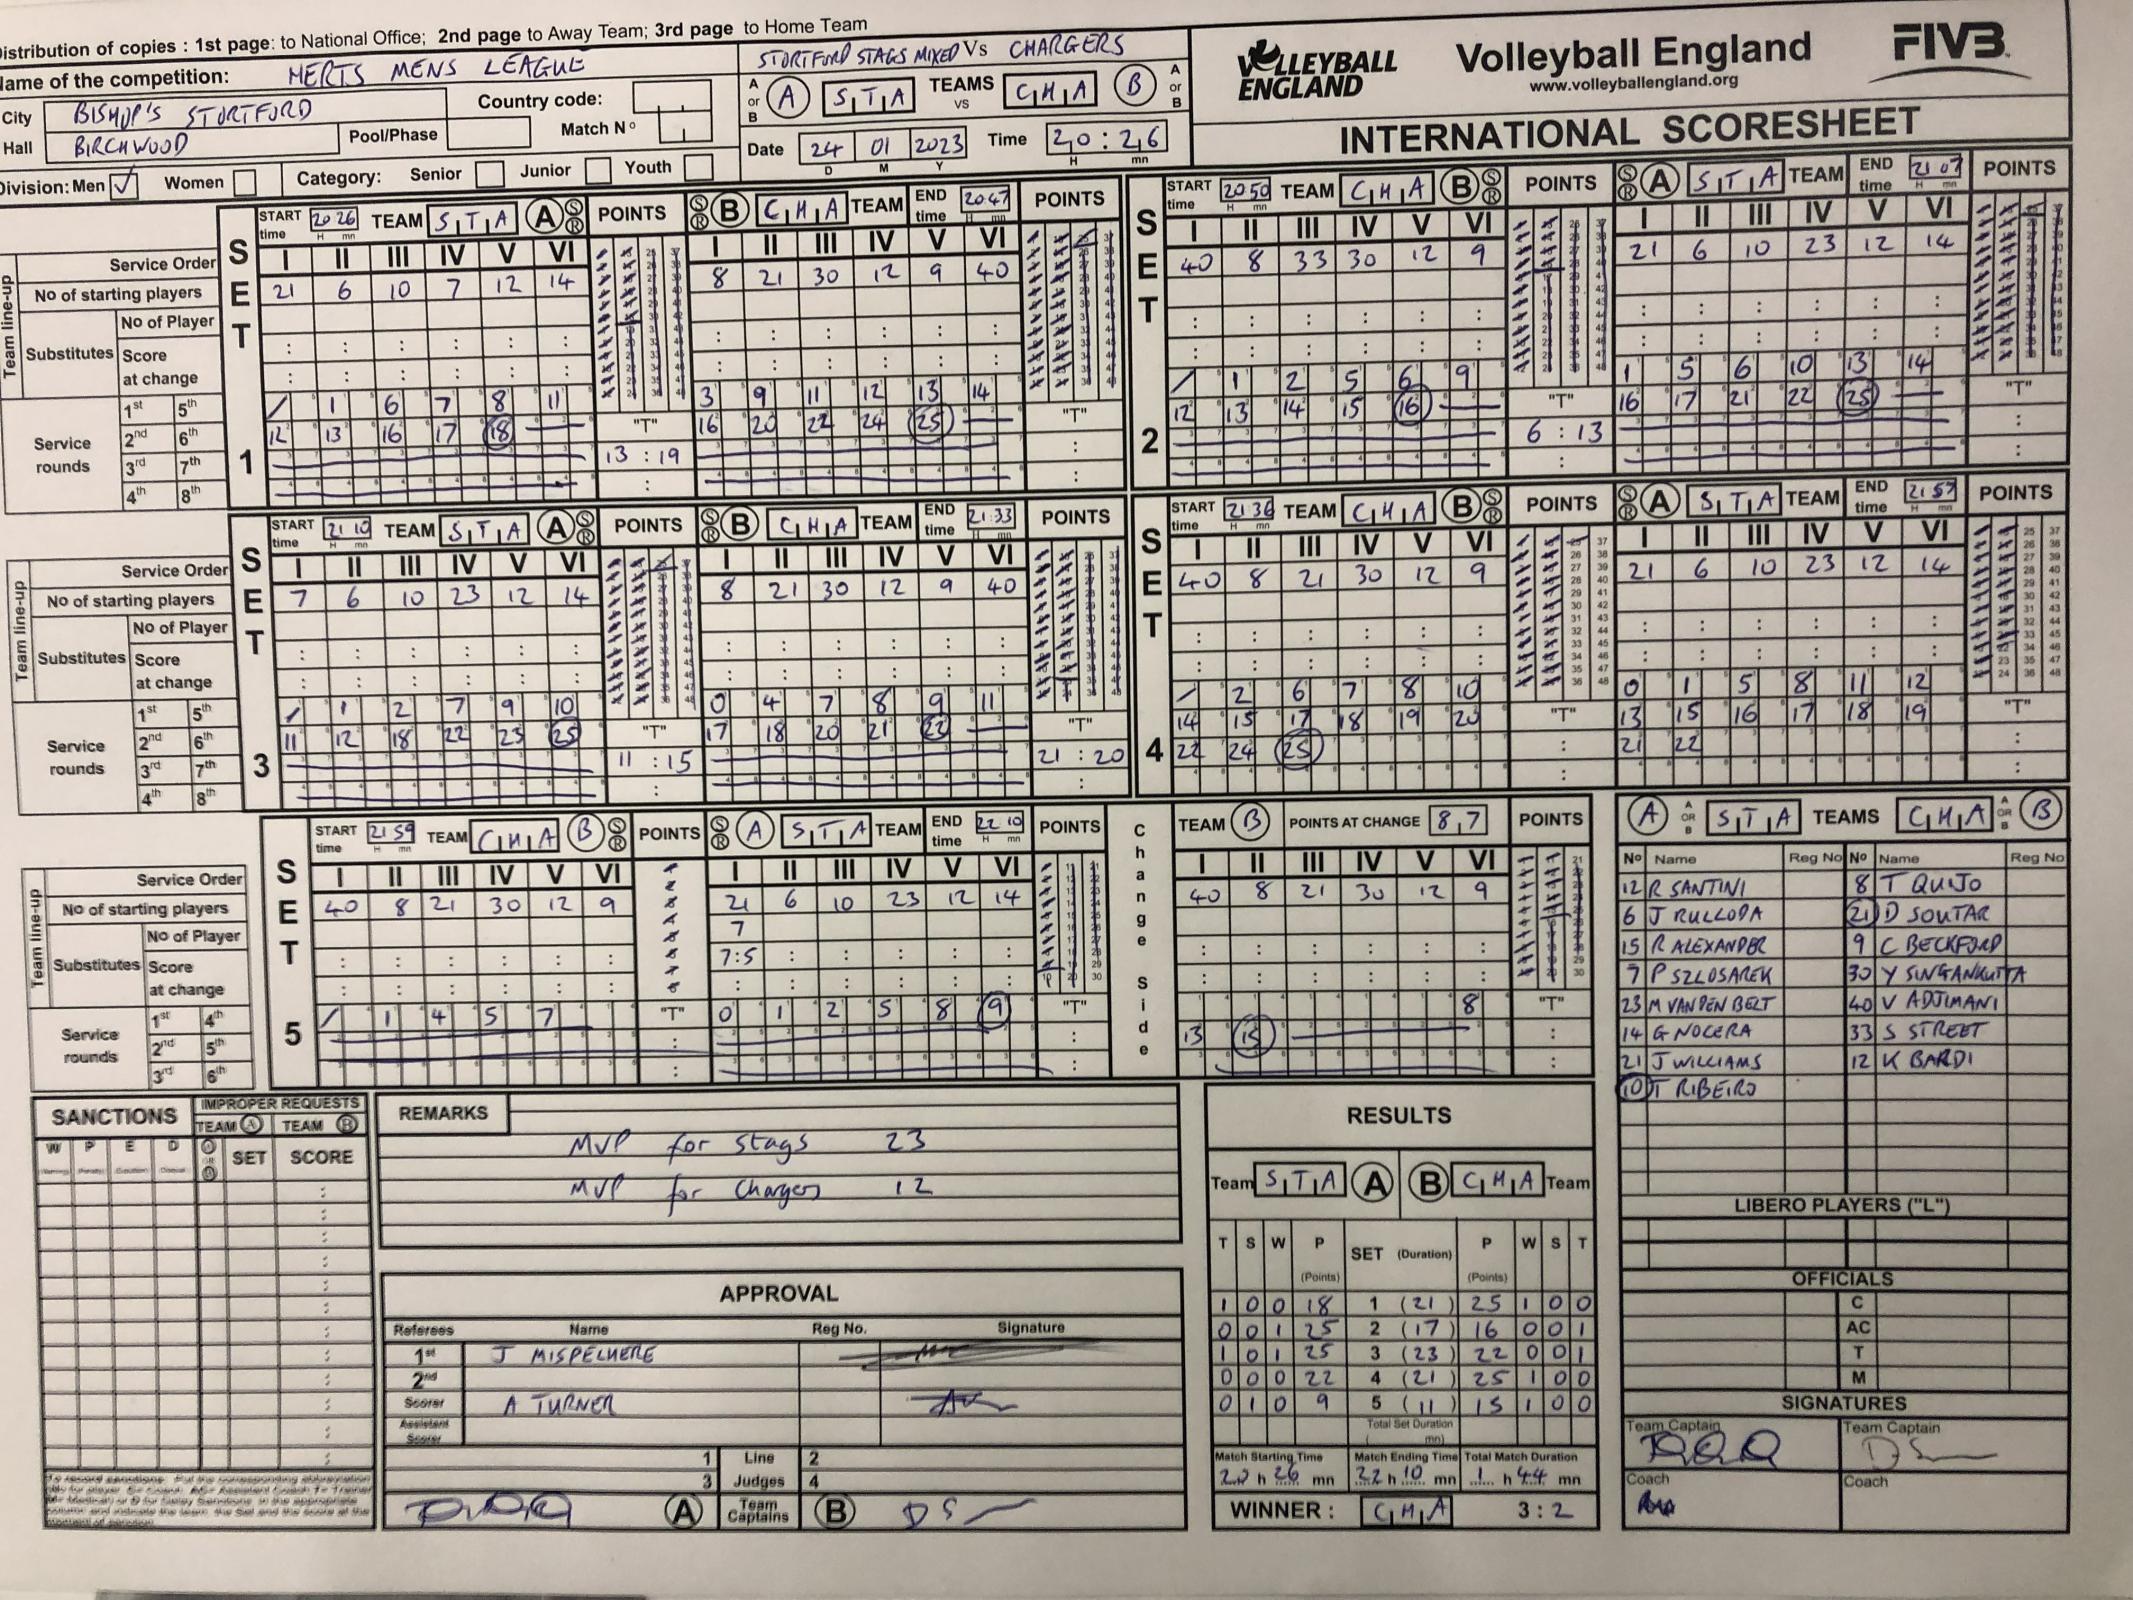 Distribution of copies : 1st page: to National Office; 2nd page to Away Team; 3rd page to Home Team
Name of the competition: HERTS MENS LEAGUE
City BISHOP'S STORTFORD
Country code:
Hall BIRCHWOOD
Pool/Phase
Match Nº
Division: Men ✓ Women Category: Senior Junior Youth
STORTFORD STAGS MIXED Vs CHARGERS
A or B A STA TEAMS vs CHA B A or B
Date 24 01 2023 Time 20:26
D M Y H mn
VOLLEYBALL ENGLAND
Volleyball England
www.volleyballengland.org
FIVB
INTERNATIONAL SCORESHEET
SET 1
START time 20 26 TEAM STA A S R POINTS S R B CHA TEAM END time 20 47 POINTS
Service Order I II III IV V VI I II III IV V VI
No of starting players 21 6 10 7 12 14 8 21 30 12 9 40
Team line-up
Substitutes No of Player
Score at change
Service rounds 1st 5th 2nd 6th 3rd 7th 4th 8th
/ 1 6 7 8 11 3 9 11 12 13 14
12 13 16 17 18 16 20 22 24 25
"T" 13 : 19 "T"
SET 2
START time 20 50 TEAM CHA B S R POINTS S R A STA TEAM END time 21 07 POINTS
I II III IV V VI I II III IV V VI
40 8 33 30 12 9 21 6 10 23 12 14
/ 1 2 5 6 9 1 5 6 10 13 14
12 13 14 15 16 16 17 21 22 25
"T" 6 : 13 "T"
SET 3
START time 21 10 TEAM STA A S R POINTS S R B CHA TEAM END time 21:33 POINTS
Service Order I II III IV V VI I II III IV V VI
No of starting players 7 6 10 23 12 14 8 21 30 12 9 40
Team line-up
Substitutes No of Player
Score at change
Service rounds 1st 5th 2nd 6th 3rd 7th 4th 8th
/ 1 2 7 9 10 0 4 7 8 9 11
11 12 18 22 23 25 17 18 20 21 22
"T" 11 : 15 "T" 21 : 20
SET 4
START time 21 36 TEAM CHA B S R POINTS S R A STA TEAM END time 21 57 POINTS
I II III IV V VI I II III IV V VI
40 8 21 30 12 9 21 6 10 23 12 14
/ 2 6 7 8 10 0 1 5 8 11 12
14 15 17 18 19 20 13 15 16 17 18 19
22 24 25 21 22
"T" "T"
SET 5
START time 21 59 TEAM CHA B S R POINTS S R A STA TEAM END time 22 10 POINTS
Change Side
TEAM B POINTS AT CHANGE 8,7 POINTS
Service Order I II III IV V VI I II III IV V VI I II III IV V VI
No of starting players 40 8 21 30 12 9 21 6 10 23 12 14 40 8 21 30 12 9
Team line-up
Substitutes No of Player 7
Score at change 7:5
Service rounds 1st 4th 2nd 5th 3rd 6th
/ 1 4 5 7 0 1 2 5 8 9 8
13 15
"T" "T" "T"
A A OR B STA TEAMS CHA A OR B B
Nº Name Reg No Nº Name Reg No
12 R SANTINI 8 T QUIJO
6 J RULLODA 21 D SOUTAR
15 R ALEXANDER 9 C BECKFORD
7 P SZLOSAREK 30 Y SINGANKUTTA
23 M VANDEN BELT 40 V ADJIMANI
14 G NOCERA 33 S STREET
21 J WILLIAMS 12 K BARDI
10 T RIBEIRO
LIBERO PLAYERS ("L")
OFFICIALS
C
AC
T
M
SIGNATURES
Team Captain Team Captain
Coach Coach
SANCTIONS
IMPROPER REQUESTS
TEAM A TEAM B
W P E D A OR B SET SCORE
REMARKS
MVP for Stags 23
MVP for Chargers 12
APPROVAL
Referees Name Reg No. Signature
1st J MISPELHERE
2nd
Scorer A TURNER
Assistant Scorer
1 Line 2
3 Judges 4
A Team Captains B DS
RESULTS
Team STA A B CHA Team
T S W P (Points) SET (Duration) P (Points) W S T
1 0 0 18 1 (21) 25 1 0 0
0 0 1 25 2 (17) 16 0 0 1
1 0 1 25 3 (23) 22 0 0 1
0 0 0 22 4 (21) 25 1 0 0
0 1 0 9 5 (11) 15 1 0 0
Total Set Duration
( mn)
Match Starting Time Match Ending Time Total Match Duration
20 h 26 mn 22 h 10 mn 1 h 44 mn
WINNER : CHA 3 : 2